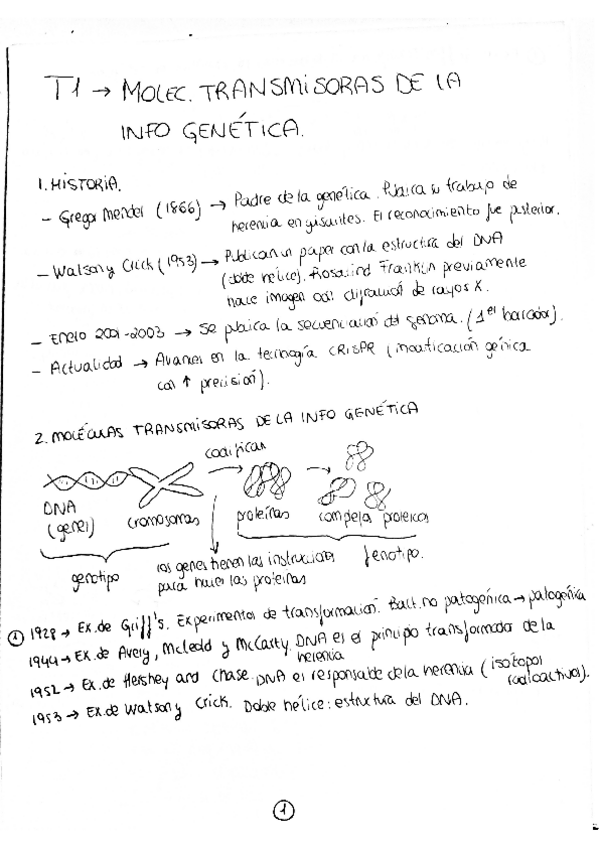 T1 → MOLEC. TRANSMISORAS DE LA
INFO GENÉTICA.
1. HISTORIA.
- Gregor Mendel (1866) → Padre de la genética. Publica su trabajo de
herencia en guisantes. El reconocimiento fue posterior.
- Watson y Crick (1953) → Publican un paper con la estructura del DNA
(doble hélice). Rosalind Franklin previamente
hace imagen con difracción de rayos X.
- Enero 2001-2003 → Se publica la secuenciación del genoma. (1er borrador).
- Actualidad → Avances en la tecnología CRISPR (modificación génica
con ↑ precisión).
2. MOLÉCULAS TRANSMISORAS DE LA INFO GENÉTICA
codifican
DNA
(genes)
cromosomas
proteínas
complejos proteicos
genotipo
los genes tienen las instrucciones
para hacer las proteínas
fenotipo.
① 1928 → Ex. de Griff's. Experimentos de transformación. Bact. no patogénica → patogénica
1944 → Ex. de Avery, Mcleold y McCarty. DNA es el principio transformador de la
herencia
1952 → Ex. de Hershey and Chase. DNA es responsable de la herencia (isótopos
radioactivos).
1953 → Ex. de Watson y Crick. Doble hélice: estructura del DNA.
1